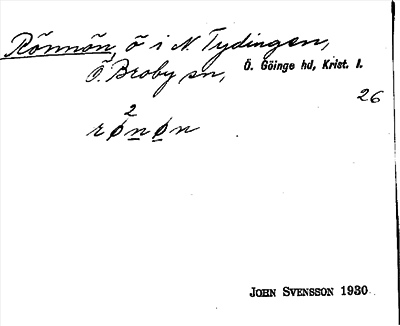 Rönnön, ö i N. Tydingen,
Ö. Broby sn, Ö. Göinge hd, Krist. l.
26
2
rønøn
JOHN SVENSSON 1930